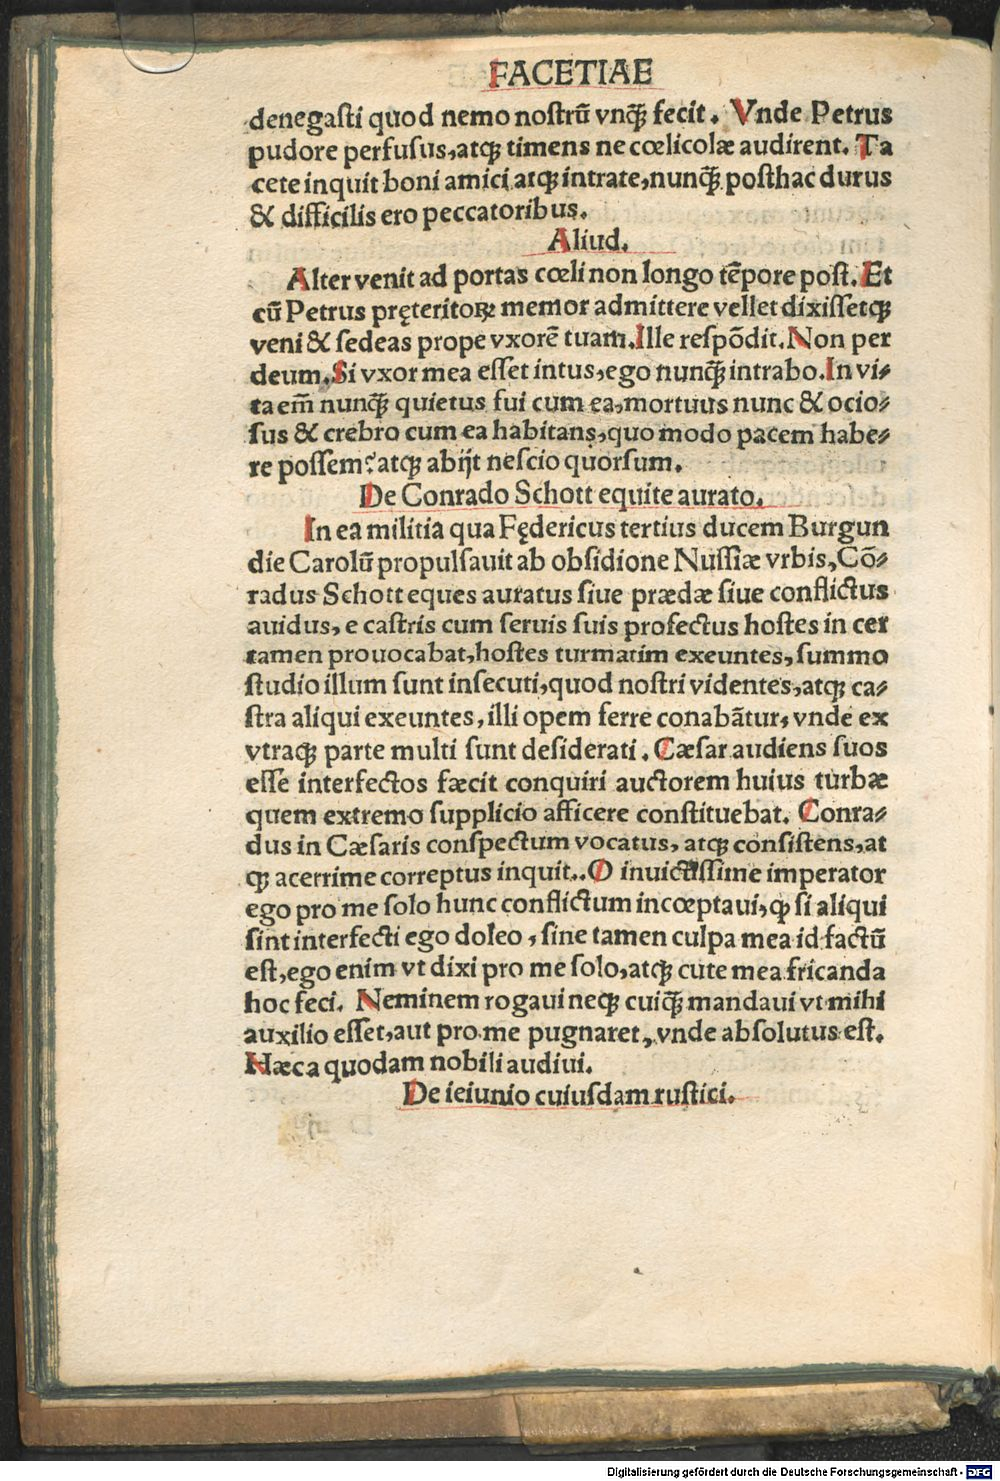 FACETIAE
denegasti quod nemo nostrū vnqꝫ̃ fecit. Vnde Petrus
pudore perfusus, atqꝫ timens ne cœlicolæ audirent. Ta
cete inquit boni amici atqꝫ intrate, nunqꝫ̃ posthac durus
& difficilis ero peccatoribus.
Aliud.
Alter venit ad portas cœli non longo tēpore post. Et
cū Petrus pręteritoꝝ memor admittere vellet dixissetqꝫ
veni & sedeas prope vxorē tuam. Ille respōdit. Non per
deum. Si vxor mea esset intus, ego nunqꝫ̃ intrabo. In vi⸗
ta em̄ nunqꝫ̃ quietus fui cum ea, mortuus nunc & ocio⸗
sus & crebro cum ea habitans, quo modo pacem habe⸗
re possem? atqꝫ abijt nescio quorsum.
De Conrado Schott equite aurato.
In ea militia qua Fędericus tertius ducem Burgun
die Carolū propulsauit ab obsidione Nussiæ vrbis, Cō⸗
radus Schott eques auratus siue prædæ siue conflictus
auidus, e castris cum seruis suis profectus hostes in cer
tamen prouocabat, hostes turmatim exeuntes, summo
studio illum sunt insecuti, quod nostri videntes, atqꝫ ca⸗
stra aliqui exeuntes, illi opem ferre conabātur, vnde ex
vtraqꝫ parte multi sunt desiderati. Cæsar audiens suos
esse interfectos fæcit conquiri auctorem huius turbæ
quem extremo supplicio afficere constituebat. Conra⸗
dus in Cæsaris conspectum vocatus, atqꝫ consistens, at
qꝫ acerrime correptus inquit.. O inuictissime imperator
ego pro me solo hunc conflictum incœptaui, qꝫ si aliqui
sint interfecti ego doleo, sine tamen culpa mea id factū
est, ego enim vt dixi pro me solo, atqꝫ cute mea fricanda
hoc feci. Neminem rogaui neqꝫ cuiqꝫ̃ mandaui vt mihi
auxilio esset, aut pro me pugnaret, vnde absolutus est.
Hæc a quodam nobili audiui.
De ieiunio cuiusdam rustici.
Digitalisierung gefördert durch die Deutsche Forschungsgemeinschaft - DFG